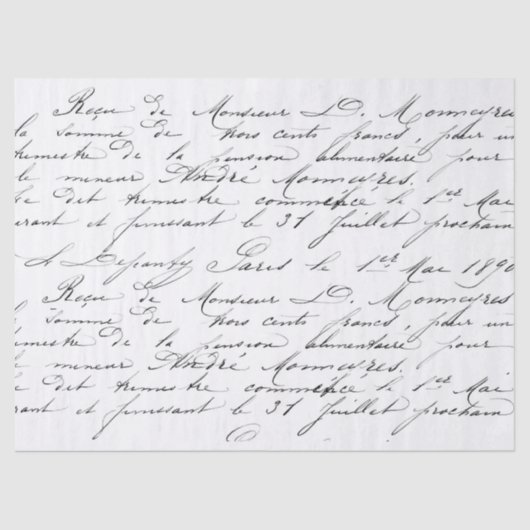 Reçu de Monsieur D. Monmeyres
la somme de trois cents francs, pour un
trimestre de la pension alimentaire pour
le mineur André Monmeyres.
Le dit trimestre commence le 1er Mai
courant et finissant le 31 Juillet prochain
Paris le 1er Mai 1890
Reçu de Monsieur D. Monmeyres
la somme de trois cents francs, pour un
imestre de la pension alimentaire pour
le mineur André Monmeyres.
Le dit trimestre commence le 1er Mai
rant et finissant le 31 Juillet prochain